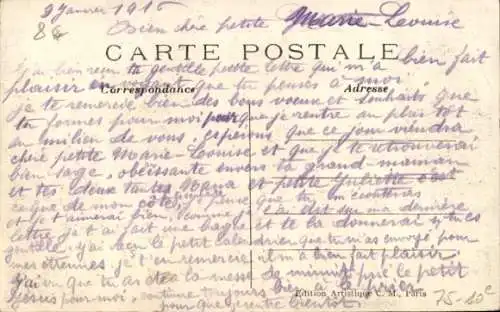 9 Janvier 1916
8G
Bien chère petite Marie-Louise
CARTE POSTALE
Correspondance
Adresse
J'ai bien reçu ta gentille petite lettre qui m'a bien fait
plaisir en voyant que tu penses à moi
je te remercie bien des bons voeux et souhaits que
tu formes pour moi pour que je rentre au plus tôt
au milieu de vous, espérons que ce jour viendra
chère petite Marie-Louise et que je te retrouverai
bien sage, obéissante envers ta grand-maman
et tes deux tantes Maria et petite Juliette c'est
ce que de mon côté je pense que tu m'écouteras
et je t'aimerai bien, comme je t'ai dit sur ma dernière
lettre je t'ai fait une bague et te la donnerai si tu es
gentille, j'ai reçu le petit calendrier que tu m'as envoyé pour
mes étrennes, je t'en remercie il m'a bien fait plaisir
j'ai vu que tu as été à la messe de minuit prié le petit
Jésus pour moi, continue toujours bien à le prier
pour que je rentre bientôt.
Edition Artistique C. M., Paris
75-10c